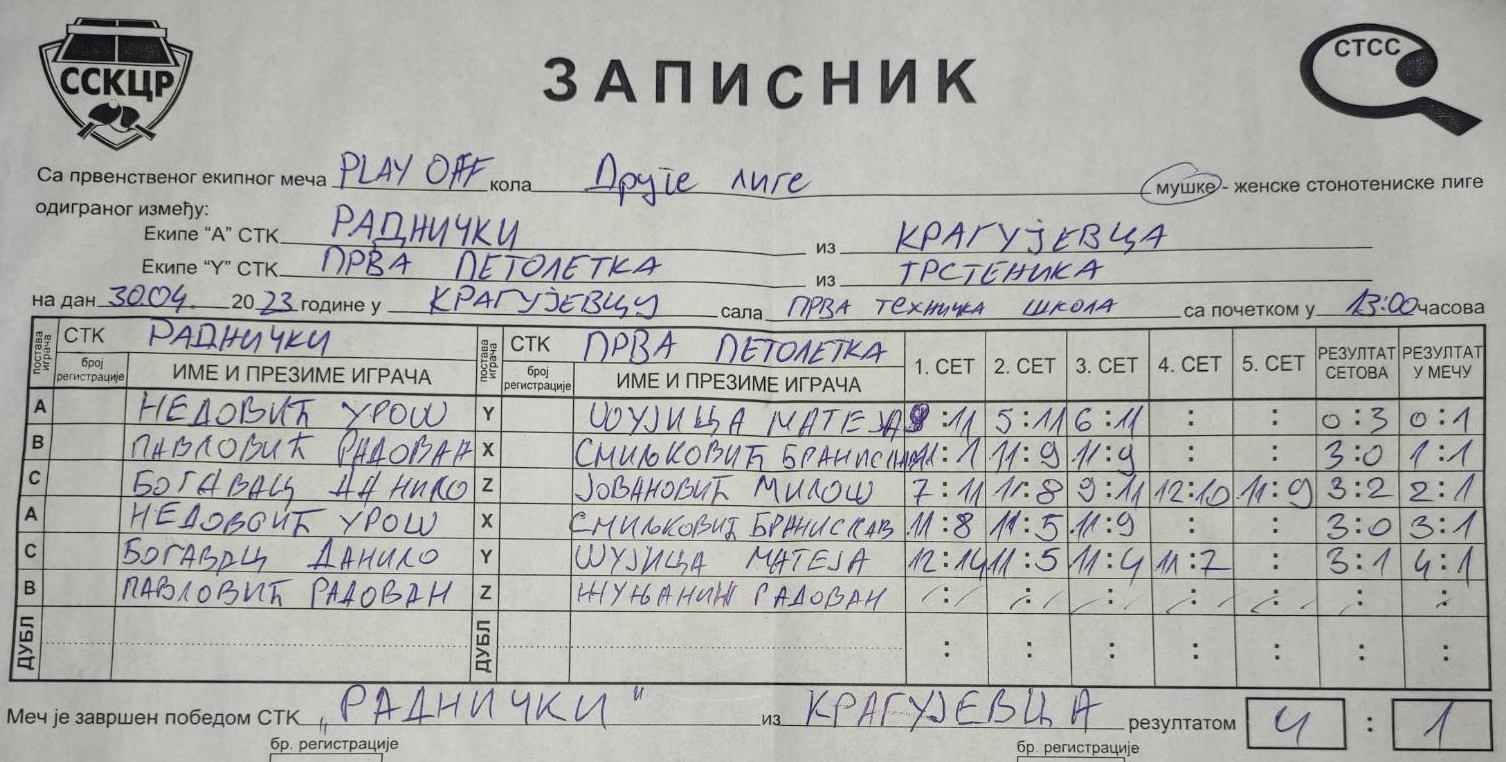 ССКЦР
ЗАПИСНИК
СТСС
Са првенственог екипног меча PLAY OFF кола Друге лиге мушке - женске стонотениске лиге
одиграног између:
Екипе “А” СТК РАДНИЧКИ из КРАГУЈЕВЦА
Екипе “Y” СТК ПРВА ПЕТОЛЕТКА из ТРСТЕНИКА
на дан 30.04. 2023 године у КРАГУЈЕВЦУ сала ПРВА ТЕХНИЧКА ШКОЛА са почетком у 13:00 часова
постава играча СТК РАДНИЧКИ постава играча СТК ПРВА ПЕТОЛЕТКА 1. СЕТ 2. СЕТ 3. СЕТ 4. СЕТ 5. СЕТ РЕЗУЛТАТ СЕТОВА РЕЗУЛТАТ У МЕЧУ
број регистрације ИМЕ И ПРЕЗИМЕ ИГРАЧА број регистрације ИМЕ И ПРЕЗИМЕ ИГРАЧА
A НЕДОВИЋ УРОШ Y ШУЈИЦА МАТЕЈА 9:11 5:11 6:11 : : 0:3 0:1
B ПАВЛОВИЋ РАДОВАН X СМИЉКОВИЋ БРАНИСЛАВ 11:1 11:9 11:9 : : 3:0 1:1
C БОГАВАЦ ДАНИЛО Z ЈОВАНОВИЋ МИЛОШ 7:11 11:8 9:11 12:10 11:9 3:2 2:1
A НЕДОВИЋ УРОШ X СМИЉКОВИЋ БРАНИСЛАВ 11:8 11:5 11:9 : : 3:0 3:1
C БОГАВАЦ ДАНИЛО Y ШУЈИЦА МАТЕЈА 12:14 11:5 11:4 11:7 : 3:1 4:1
B ПАВЛОВИЋ РАДОВАН Z ЖУЊАНИН РАДОВАН /:/ /:/ /:/ /:/ /:/ : :
ДУБЛ ДУБЛ : : : : : : :
Меч је завршен победом СТК „РАДНИЧКИ" из КРАГУЈЕВЦА резултатом 4 : 1
бр. регистрације бр. регистрације